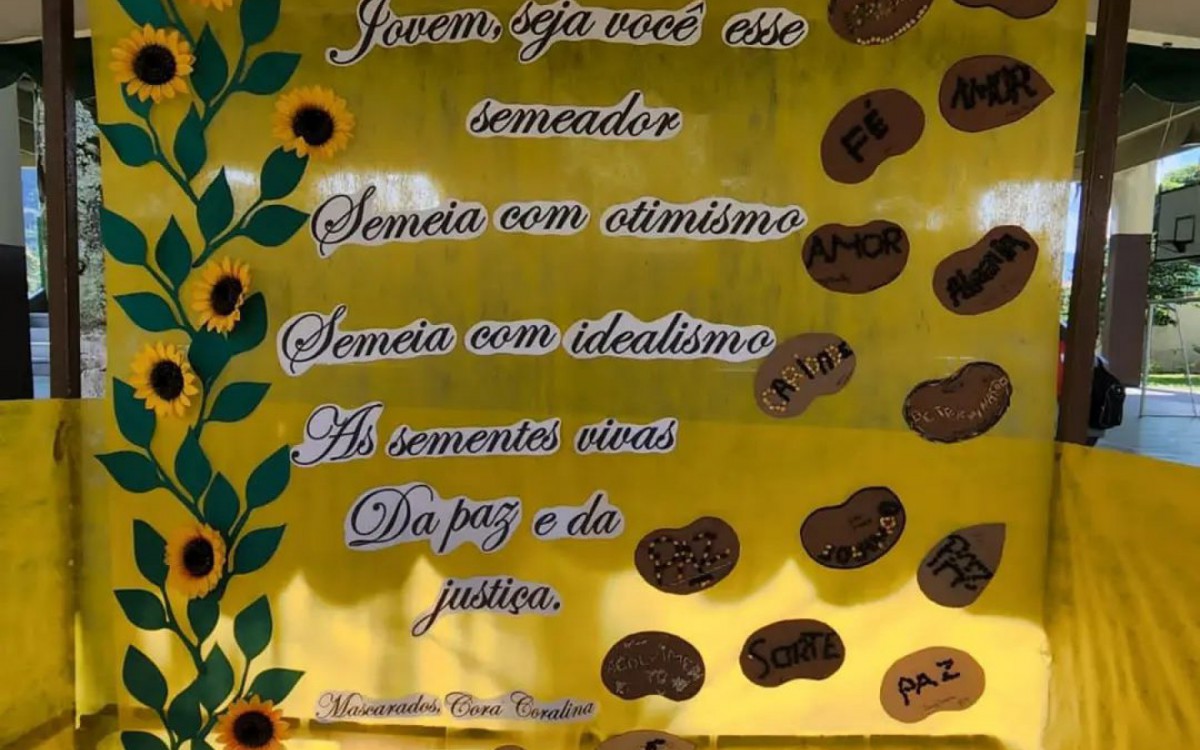 Jovem, seja você esse
semeador
Semeia com otimismo
Semeia com idealismo
As sementes vivas
Da paz e da
justiça.
Mascarados, Cora Coralina
AMOR
FÉ
AMOR
Alegria
PAZ
PAZ
SORTE
PAZ